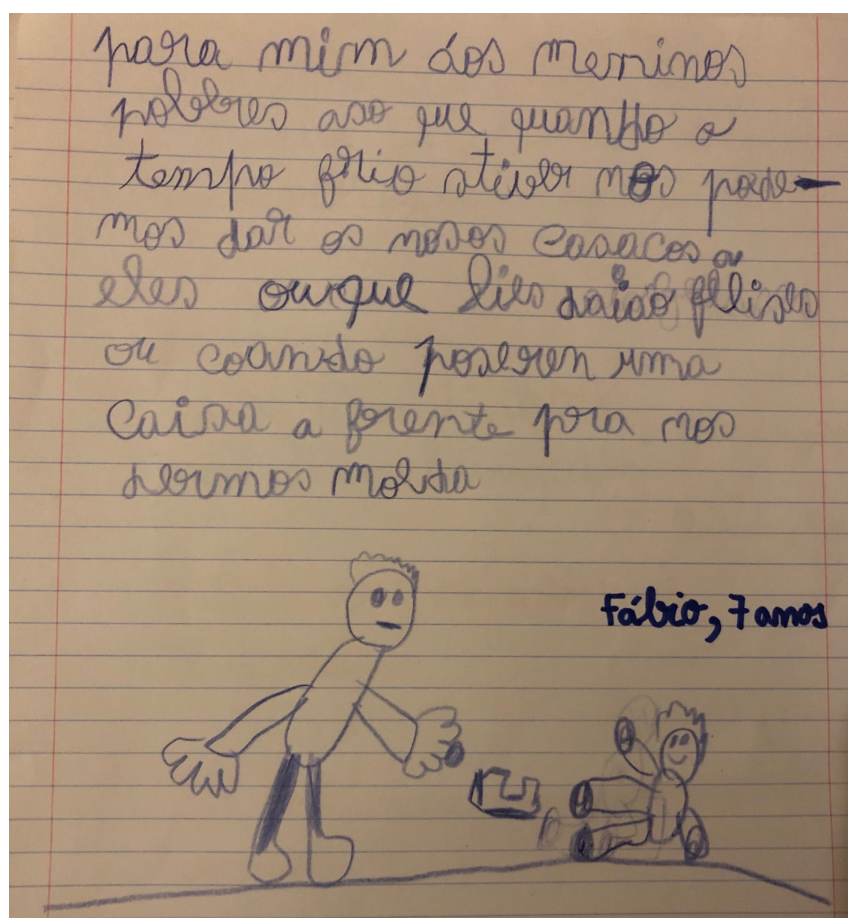 para mim dos meninos
pobbres axo que quando o
tempo frio stiver nos pode-
mos dar os nosos casacos a
eles ouque lies daião felises
ou coando poseren uma
caixa a frente pra nos
dermos moeda
Fábio, 7 anos